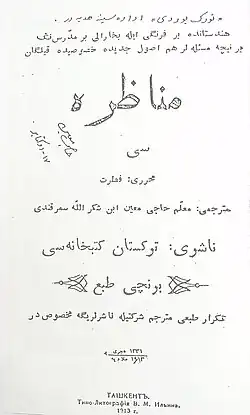 هندستانده بر فرنگی ایله بخارالی بر مدرس‌نینک
بر نیچه مسئله‌لر هم اصول جدیده خصوصیده قیلگان
مناظره
سی
محرری: فطرت
مترجمی: معلم حاجی معین ابن شکرالله سمرقندی
ناشری: ترکستان کتبخانه‌سی
۱ نچی طبع
تکرار طبعی مترجم شرکتیله ناشرلریگه مخصوص در
۱۳۳۱ هجری
۱۹۱۳ میلادی
ТАШКЕНТЪ.
Типо-Литографія В. М. Ильина.
1913 г.